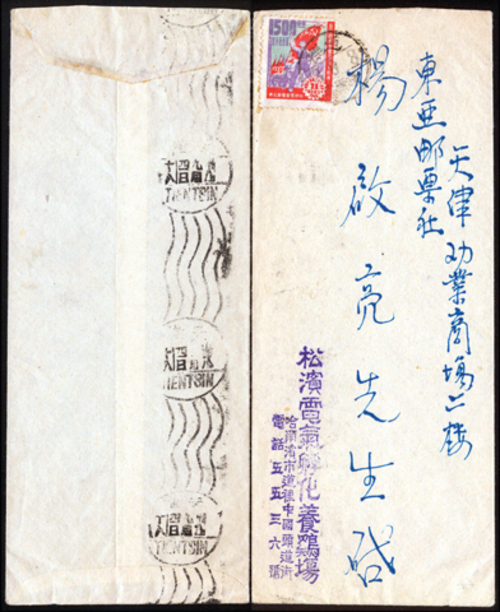 天津 劝業商場二楼
東亚邮票社
楊啟亮先生啓
松濱電氣孵化養鷄場
哈爾濱市道裡中國頭道街
電話五五三六號
1500
TIENTSIN
TIENTSIN
TIENTSIN